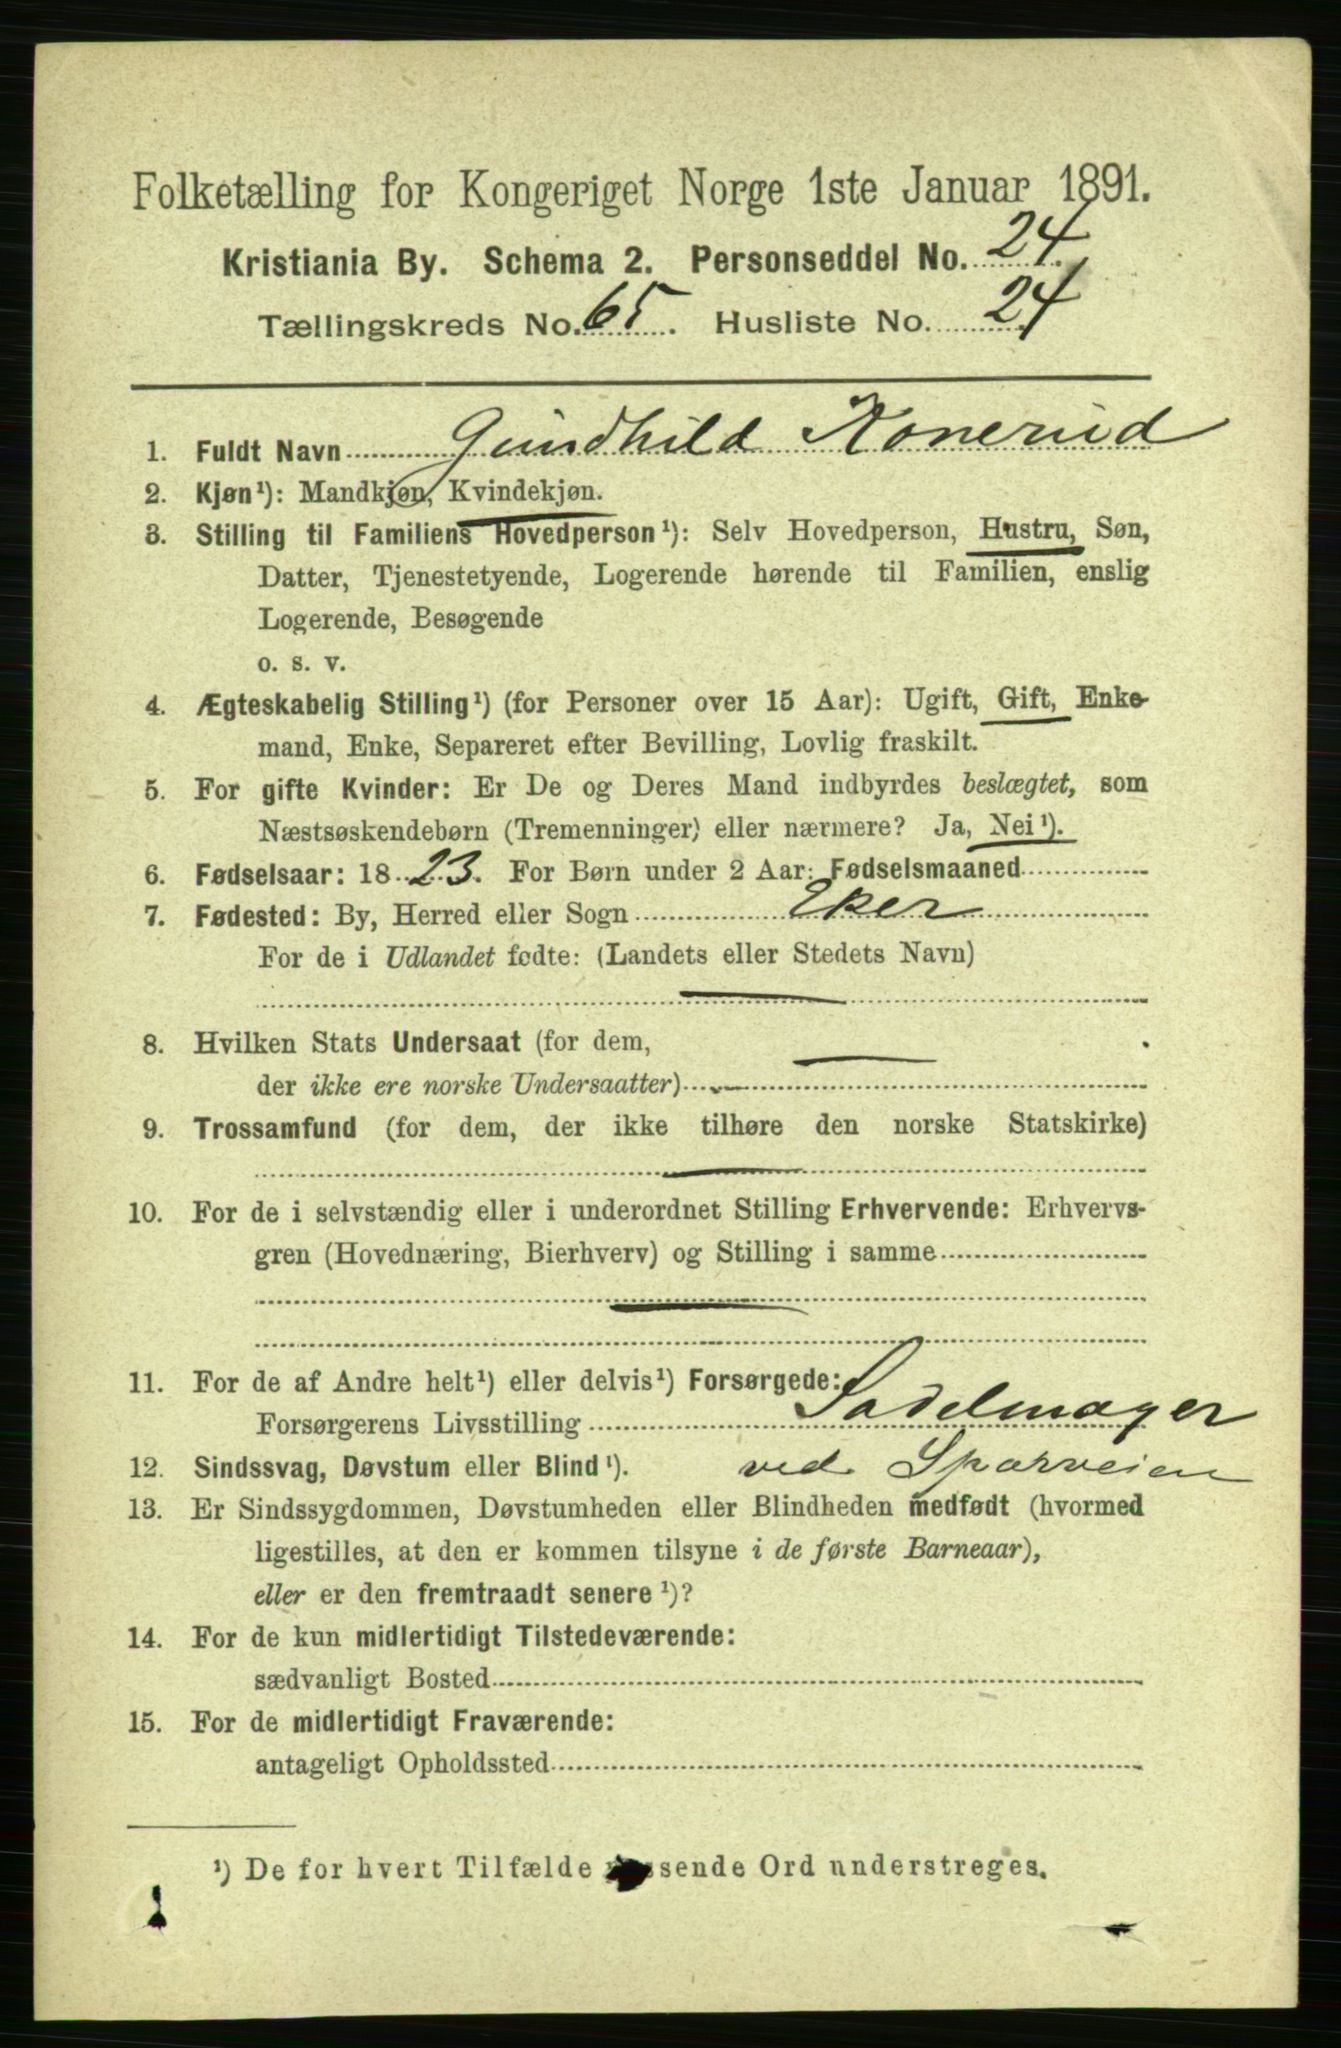 Folketælling for Kongeriget Norge 1ste Januar 1891.
Kristiania By. Schema 2. Personseddel No. 24.
Tællingskreds No. 65. Husliste No. 24
1. Fuldt Navn Gundhild Konerud
2. Kjøn¹): Mandkjøn, Kvindekjøn.
3. Stilling til Familiens Hovedperson¹): Selv Hovedperson, Hustru, Søn,
Datter, Tjenestetyende, Logerende hørende til Familien, enslig
Logerende, Besøgende
o. s. v.
4. Ægteskabelig Stilling¹) (for Personer over 15 Aar): Ugift, Gift, Enke-
mand, Enke, Separeret efter Bevilling, Lovlig fraskilt.
5. For gifte Kvinder: Er De og Deres Mand indbyrdes beslægtet, som
Næstsøskendebørn (Tremenninger) eller nærmere? Ja, Nei¹).
6. Fødselsaar: 1823. For Børn under 2 Aar: Fødselsmaaned
7. Fødested: By, Herred eller Sogn Eker
For de i Udlandet fødte: (Landets eller Stedets Navn)
8. Hvilken Stats Undersaat (for dem,
der ikke ere norske Undersaatter)
9. Trossamfund (for dem, der ikke tilhøre den norske Statskirke)
10. For de i selvstændig eller i underordnet Stilling Erhvervende: Erhvervs-
gren (Hovednæring, Bierhverv) og Stilling i samme
11. For de af Andre helt¹) eller delvis¹) Forsørgede:
Forsørgerens Livsstilling Sadelmager
12. Sindssvag, Døvstum eller Blind¹). ved Sporveien
13. Er Sindssygdommen, Døvstumheden eller Blindheden medfødt (hvormed
ligestilles, at den er kommen tilsyne i de første Barneaar),
eller er den fremtraadt senere¹)?
14. For de kun midlertidigt Tilstedeværende:
sædvanligt Bosted
15. For de midlertidigt Fraværende:
antageligt Opholdssted
¹) De for hvert Tilfælde passende Ord understreges.